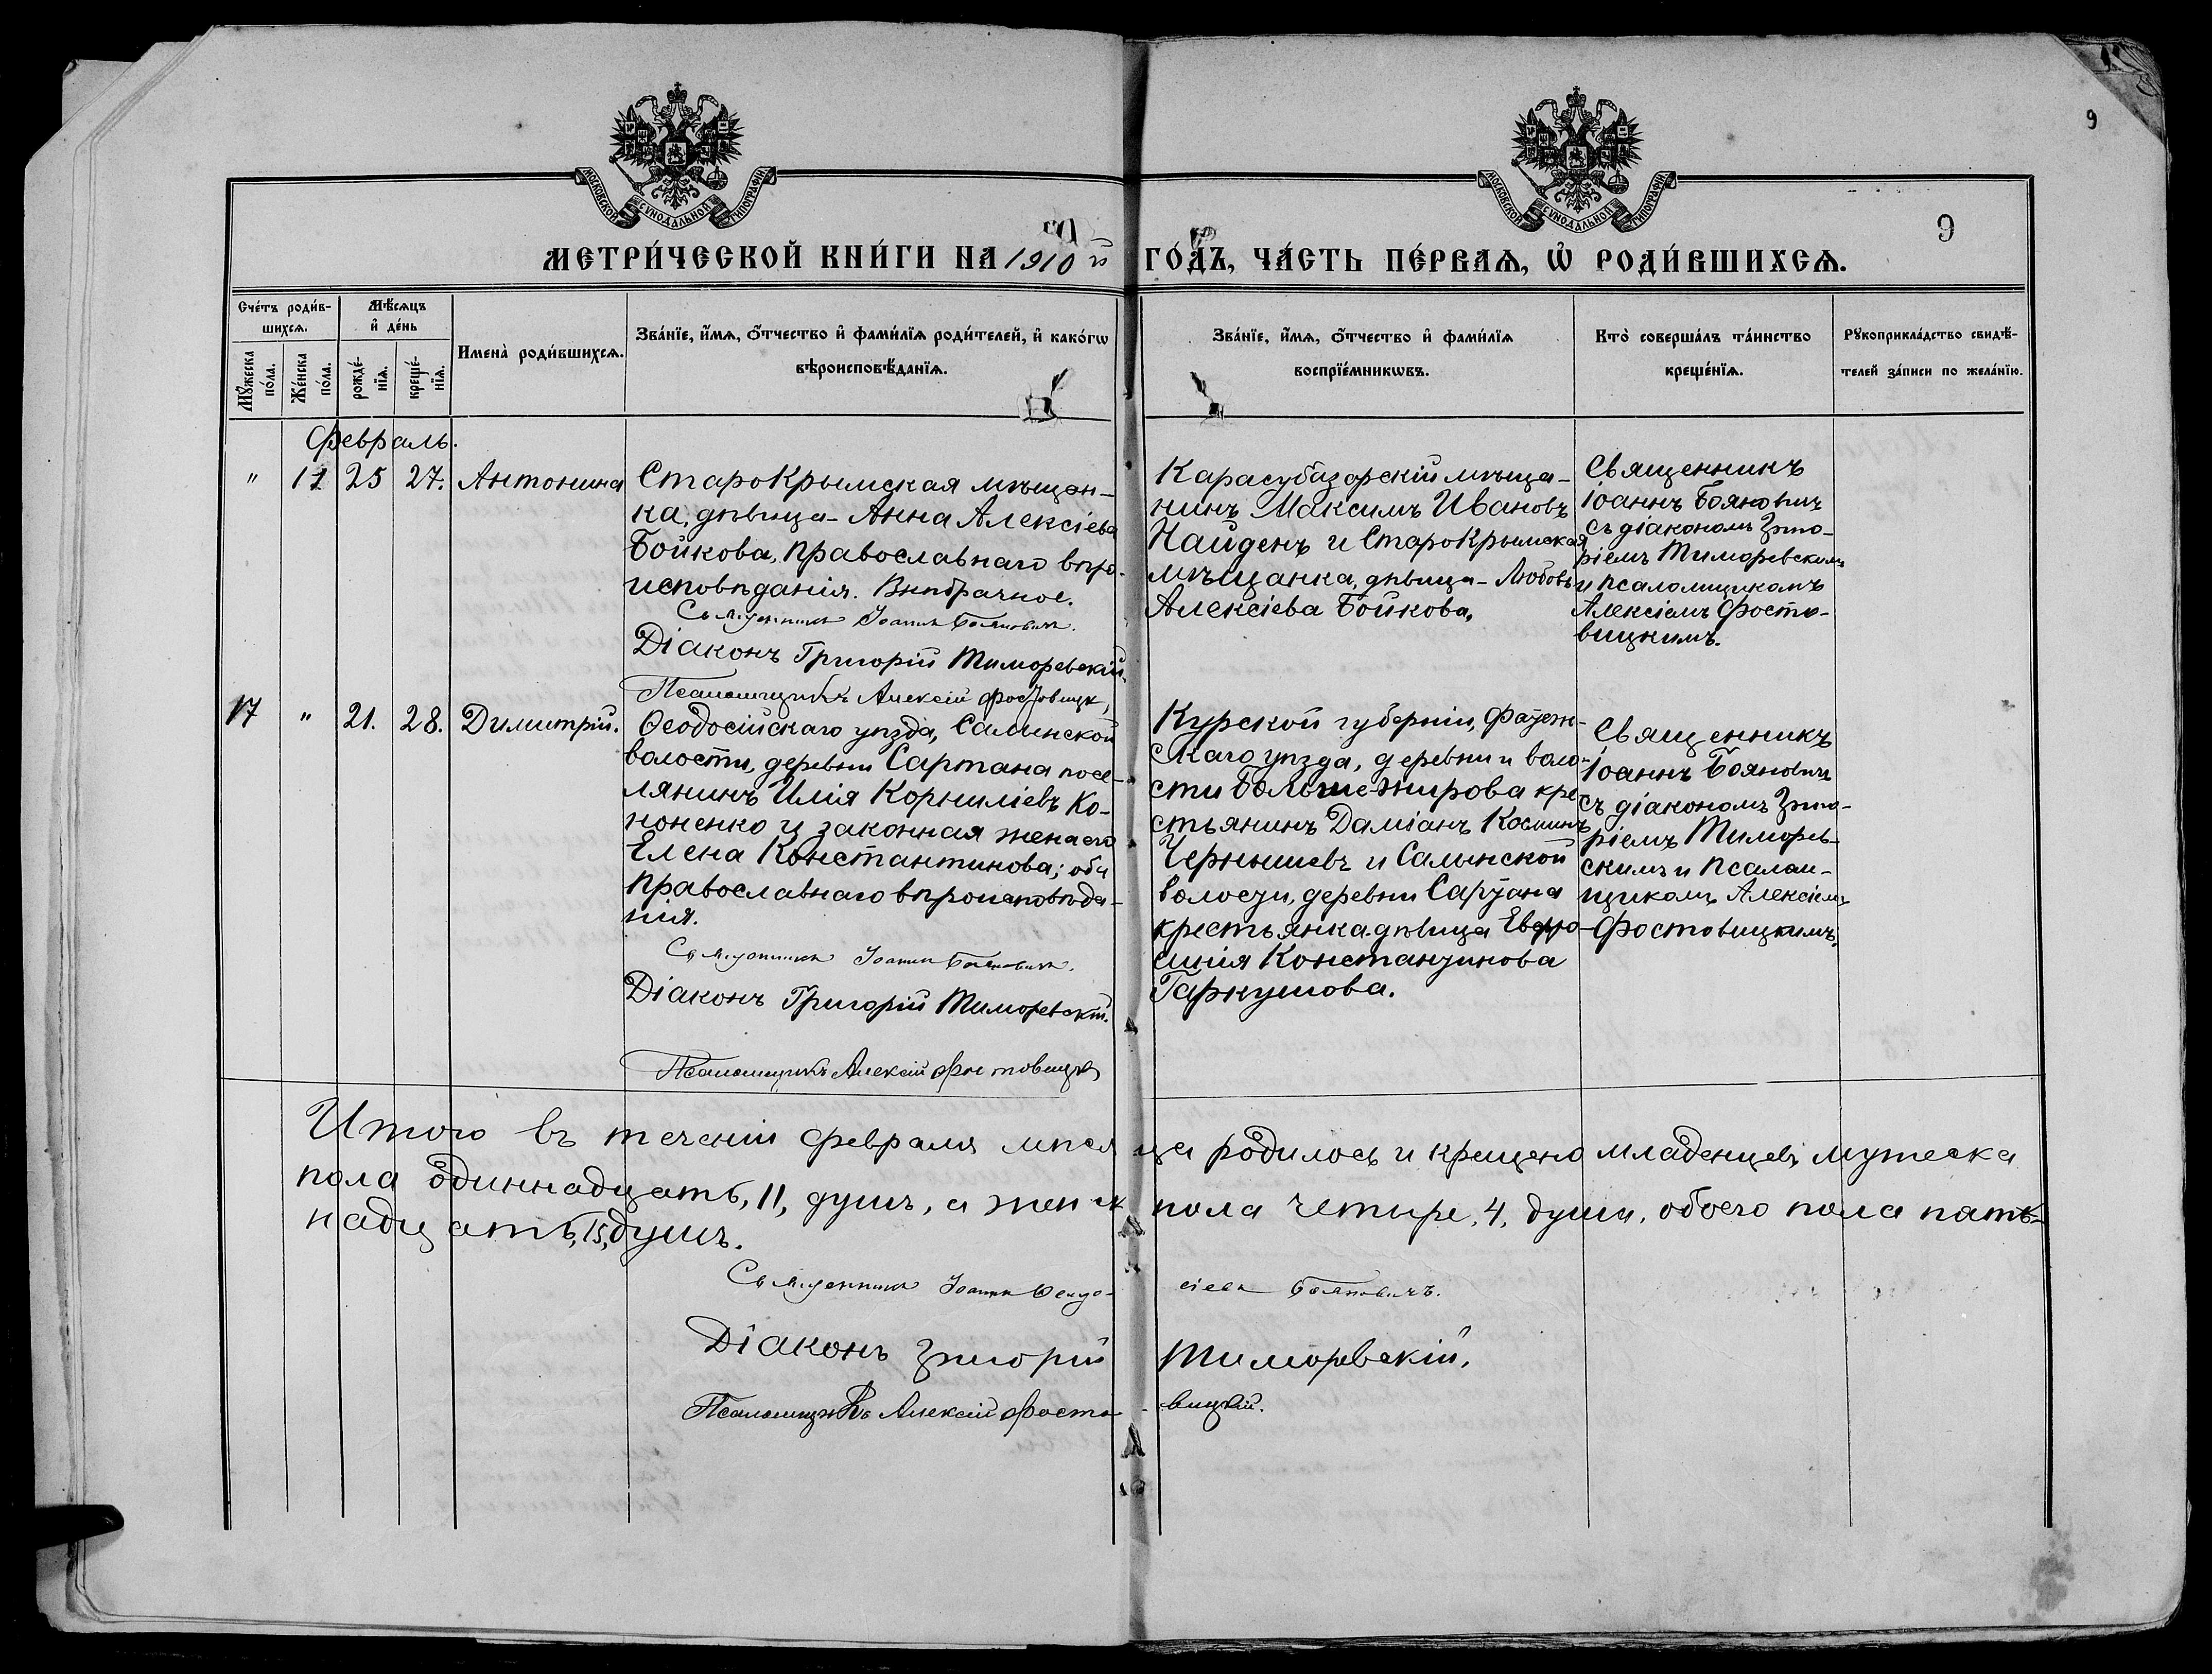 9
МОСКОВСКОЙ СУНОДАЛЬНОЙ ТИПОГРАФІИ
МОСКОВСКОЙ СУНОДАЛЬНОЙ ТИПОГРАФІИ
9
МЕТРИ́ЧЕСКОЙ КНИ́ГИ НА 1910 й ГО́ДЪ, ЧА́СТЬ ПЕ́РВАѦ, Ѽ РОДИ́ВШИХСѦ.
Сче́тъ роди́в-
шихсѧ.
Мꙋ́жеска по́ла.
Же́нска по́ла.
Мѣ́сѧцъ
и҆ де́нь
рожде́-нїѧ.
креще́-нїѧ.
Имена̀ роди́вшихсѧ.
Зва́нїе, и҆́мѧ, ѻ҆́тчество и҆ фами́лїѧ роди́телей, и҆ како́гѡ
вѣроисповѣ́данїѧ.
Зва́нїе, и҆́мѧ, ѻ҆́тчество и҆ фами́лїѧ
воспрїе́мникѡвъ.
Кто̀ соверша́лъ та́инство
креще́нїѧ.
Рꙋкоприкла́дство свидѣ́-
телей за́писи по жела́нїю.
Февраль.
" 11 25 27. Антонина
СтароКрымская мѣщан-
ка, дѣвица - Анна Алексіева
Бойкова, православнаго вѣро-
исповѣданія. Внѣбрачное.
Священникъ Іоаннъ Бояновичъ.
Діаконъ Григорій Тиморевскій.
Псаломщикъ Алексій Фостовицк
Карасубазарскій мѣща-
нинъ Максимъ Ивановъ
Найденъ и СтароКрымская
мѣщанка, дѣвица - Любовь
Алексіева Бойкова.
Священникъ
Іоаннъ Бояновичъ
съ діакономъ Григо-
ріемъ Тиморевскимъ
и псаломщикомъ
Алексіемъ Фосто-
вицкимъ.
17 " 21. 28. Димитрій.
Ѳеодосійскаго уѣзда, Салынской
волости, деревни Сартана посе-
лянинъ Илія Корниліевъ Ко-
ноненко и законная жена его
Елена Константинова; оба
православнаго вѣроисповѣда-
нія.
Священникъ Іоаннъ Бояновичъ.
Діаконъ Григорій Тиморевскій.
Псаломщикъ Алексій Фостовицк
Курской губерніи, Фатеж-
скаго уѣзда, деревни и воло-
сти Больше-Жирова кре-
стьянинъ Даміанъ Косминъ
Чернышевъ и Салынской
волости, деревни Сартана
крестьянка дѣвица Евфро-
синія Константинова
Гаркушова.
Священникъ
Іоаннъ Бояновичъ
съ діакономъ Григо-
ріемъ Тиморев-
скимъ и псалом-
щикомъ Алексіемъ
Фостовицкимъ.
Итого въ теченіи февраля мѣсяца родилось и крещено младенцевъ мужеска
пола одиннадцать, 11, душъ, а женск пола четыре, 4, души, обоего пола пять-
надцать, 15, душъ.
Священникъ Іоаннъ Ѳеодосіевъ Бояновичъ.
Діаконъ Григорій Тиморевскій.
Псаломщикъ Алексій Фостовицкій.